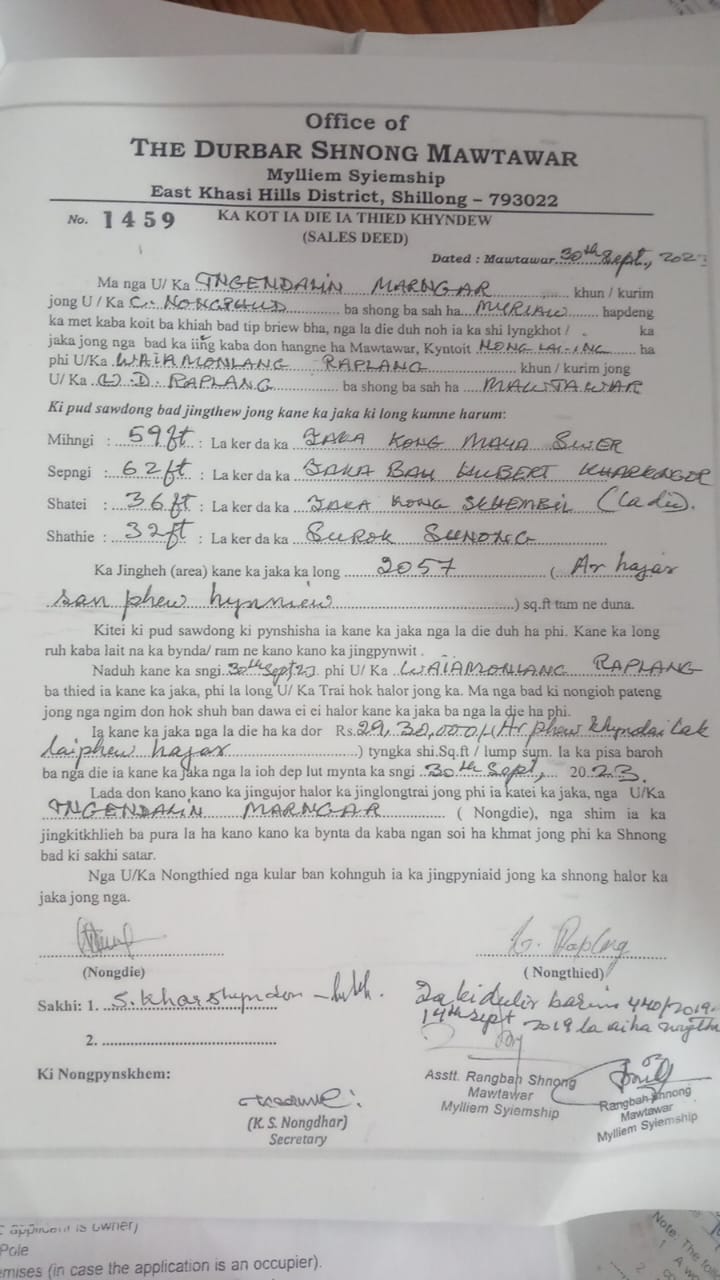 Office of
THE DURBAR SHNONG MAWTAWAR
Mylliem Syiemship
East Khasi Hills District, Shillong – 793022
No. 1459 KA KOT IA DIE IA THIED KHYNDEW
(SALES DEED)
Dated : Mawtawar 30th Sept., 202
Ma nga U/ Ka INGENDALIN MARNGAR khun / kurim
jong U / Ka C. ba shong ba sah ha hapdeng
ka met kaba koit ba khiah bad tip briew bha, nga la die duh noh ia ka shi lyngkhot / ka
jaka jong nga bad ka iing kaba don hangne ha Mawtawar, Kyntoit NONG LAI-ING ha
phi U/Ka WAIAMONLANG RAPLANG khun / kurim jong
U/ Ka D. RAPLANG ba shong ba sah ha MAWTAWAR
Ki pud sawdong bad jingthew jong kane ka jaka ki long kumne harum:
Mihngi : 59ft : La ker da ka JAKA KONG MAYA SWER
Sepngi : 62ft : La ker da ka JAKA BAH HUBERT KHARKONGOR
Shatei : 36ft : La ker da ka JAKA KONG (la die).
Shathie : 32ft : La ker da ka SUROK SHNONG
Ka Jingheh (area) kane ka jaka ka long 2057 ( Ar hajar
san phew hynniew ) sq.ft tam ne duna.
Kitei ki pud sawdong ki pynshisha ia kane ka jaka nga la die duh ha phi. Kane ka long
ruh kaba lait na ka bynda/ ram ne kano kano ka jingpynwit .
Naduh kane ka sngi 30th Sept/23. phi U/ Ka WAIAMONLANG RAPLANG
ba thied ia kane ka jaka, phi la long U/ Ka Trai hok halor jong ka. Ma nga bad ki nongioh pateng
jong nga ngim don hok shuh ban dawa ei ei halor kane ka jaka ba nga la die ha phi.
Ia kane ka jaka nga la die ha ka dor Rs. 29,30,000/- (Ar phew khyndai lak
laiphew hajar ) tyngka shi.Sq.ft / lump sum. Ia ka pisa baroh
ba nga die ia kane ka jaka nga la ioh dep lut mynta ka sngi 30th Sept, 2023.
Lada don kano kano ka jingujor halor ka jinglongtrai jong phi ia katei ka jaka, nga U/Ka
INGENDALIN MARNGAR ( Nongdie), nga shim ia ka
jingkitkhlieh ba pura la ha kano kano ka bynta da kaba ngan soi ha khmat jong phi ka Shnong
bad ki sakhi satar.
Nga U/Ka Nongthied nga kular ban kohnguh ia ka jingpyniaid jong ka shnong halor ka
jaka jong nga.
(Nongdie) (Nongthied)
Sakhi: 1. S. Kharshyndon
Ia ki dulir 440/2019
14th Sept 2019 la ai ha
2.
Ki Nongpynskhem:
Asstt. Rangbah Shnong
Mawtawar
Mylliem Syiemship
Rangbah Shnong
Mawtawar
Mylliem Syiemship
(K. S. Nongdhar)
Secretary
applicant is owner)
Pole
mises (in case the application is an occupier).
Note: The